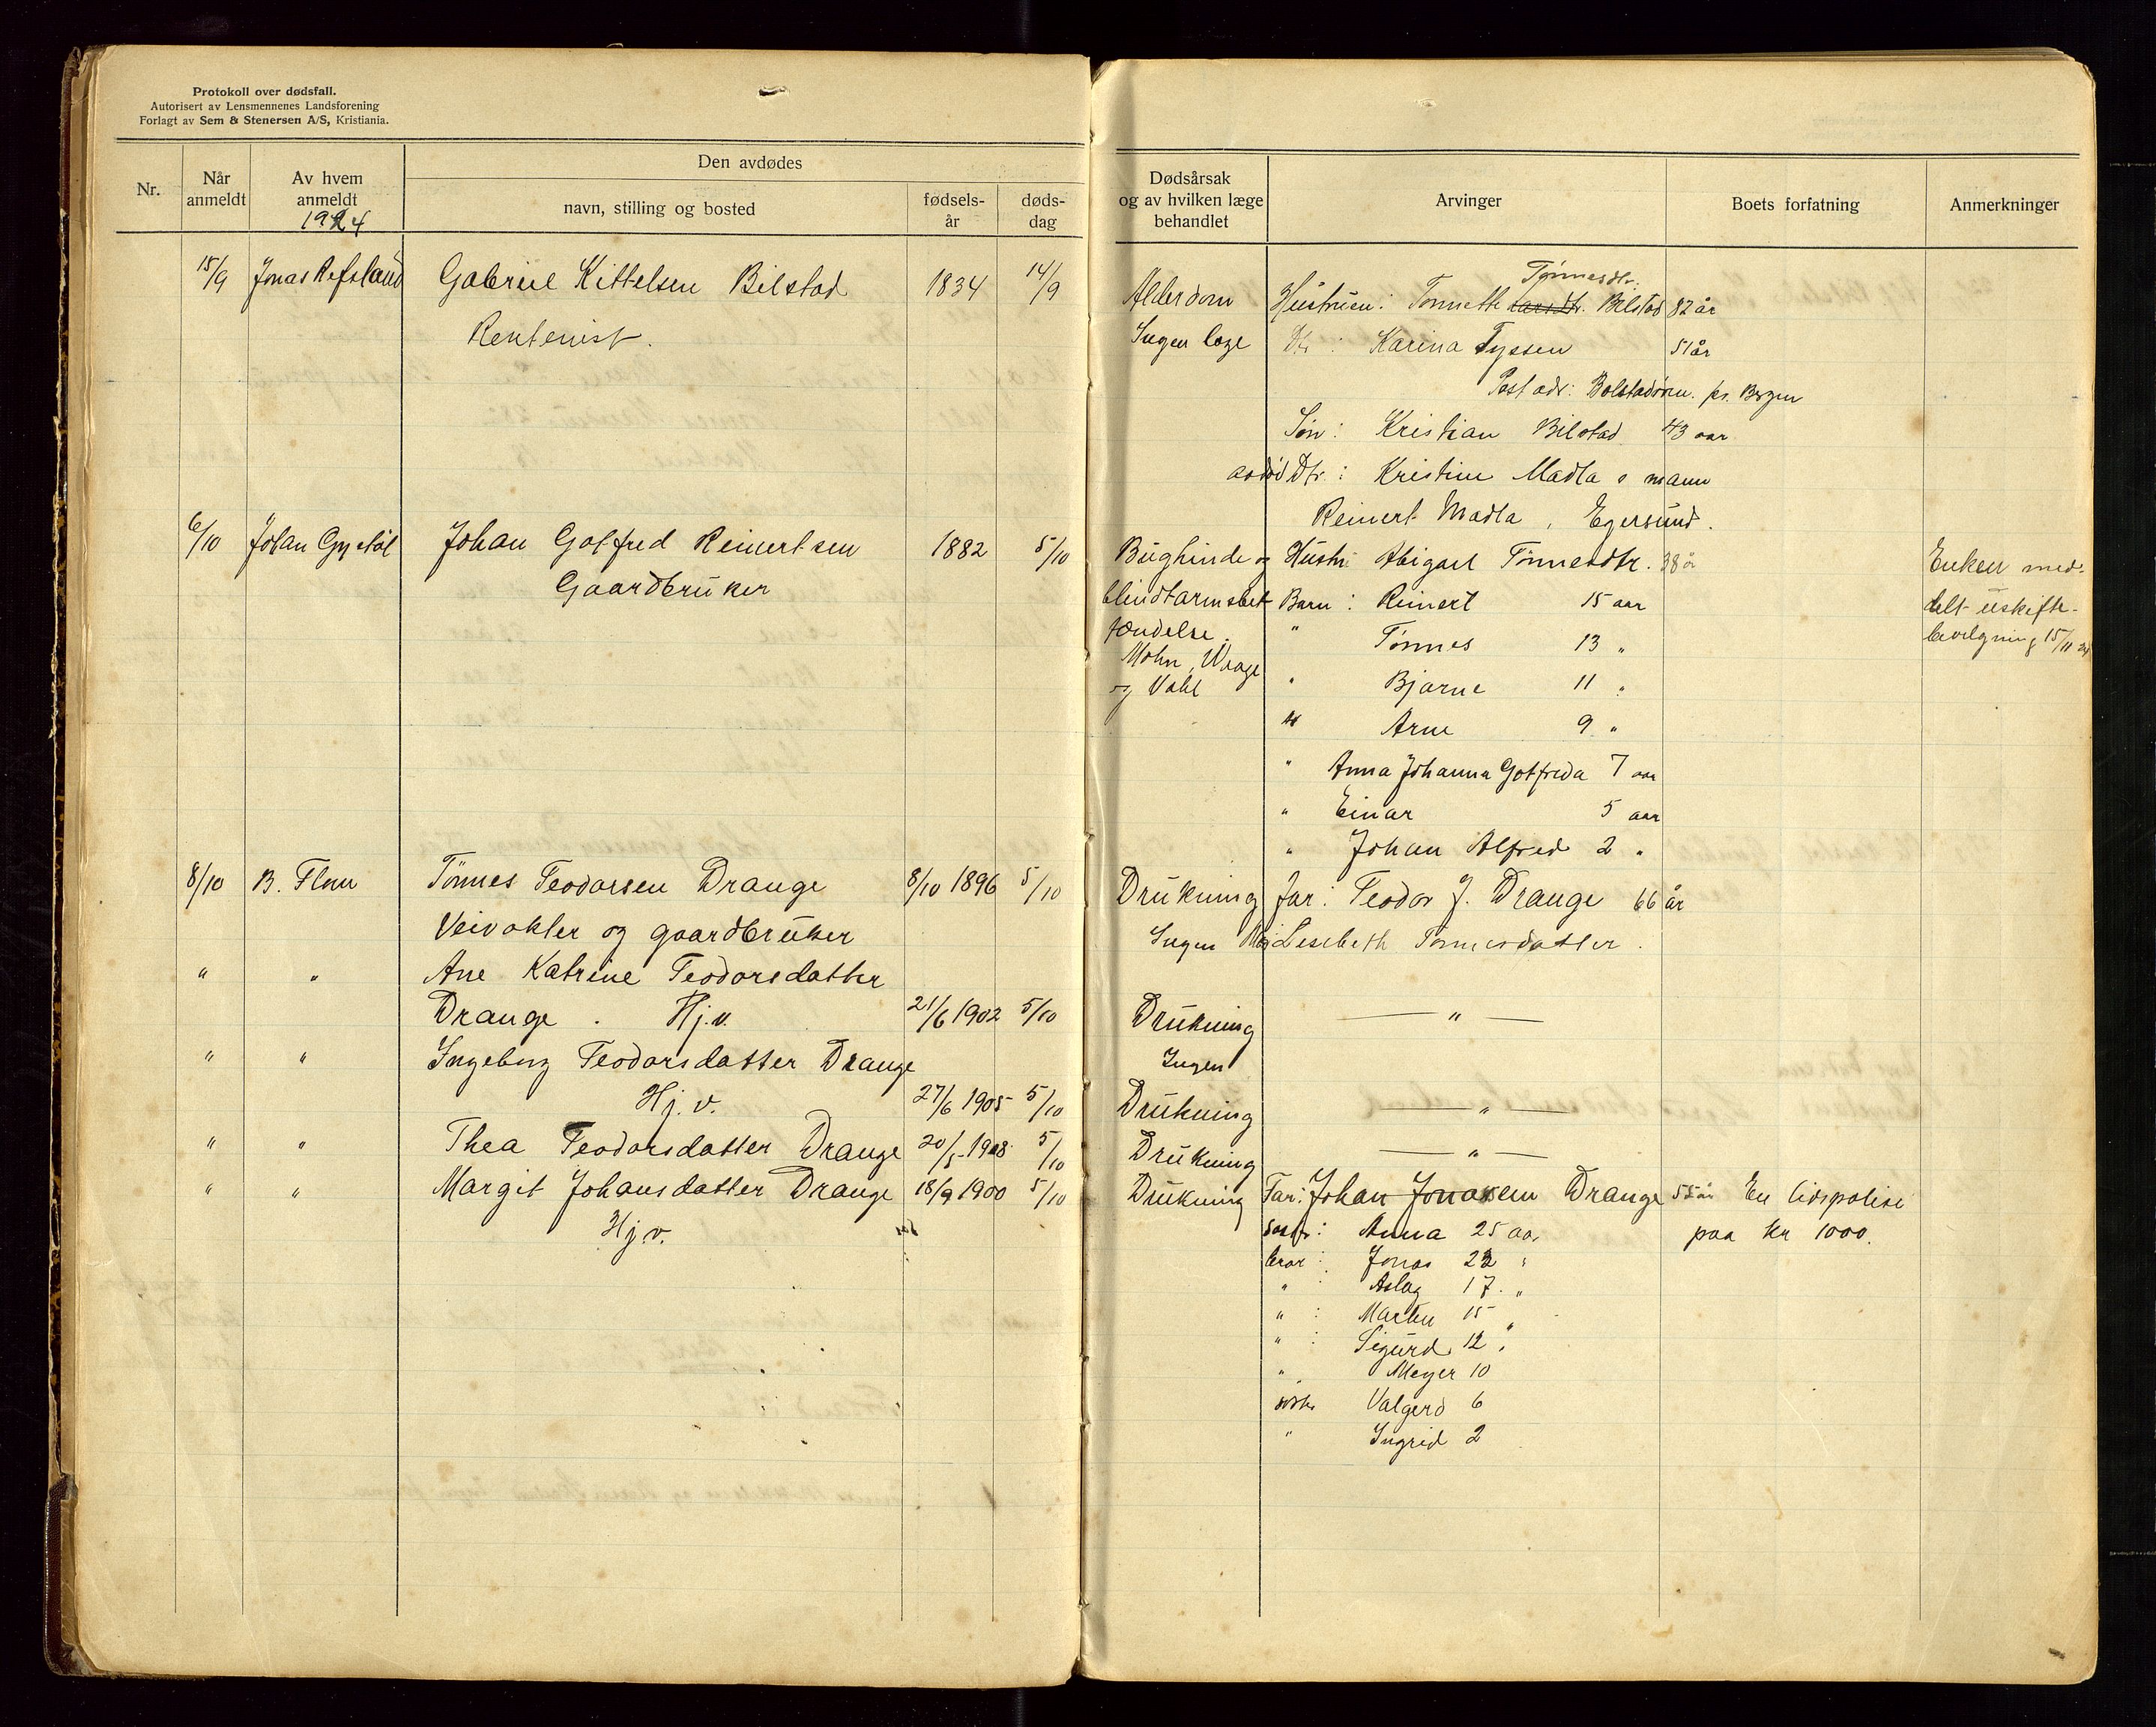 Protokoll over dødsfall.
Autorisert av Lensmennenes Landsforening
Forlagt av Sem & Stenersen A/S, Kristiania.
Nr.
Når anmeldt
Av hvem anmeldt
1924
Den avdødes
navn, stilling og bosted
fødsels-år
døds-dag
15/9 Jonas Refsland Gabriel Kittelsen Bilstad 1834 14/9
Rentenist.
6/10 Johan Gystøl Johan Gotfred Reinertsen 1882 5/10
Gaardbruker
8/10 B. Flom Tønnes Teodorsen Drange 8/10 1896 5/10
Veivokter og gaardbruker
" " Ane Katrine Teodorsdatter
Drange . Hj.v. 21/6 1902 5/10
" " Ingeborg Teodorsdatter Drange
Hj.v. 27/6 1905 5/10
" " Thea Teodorsdatter Drange 20/5 1908 5/10
" " Margit Johansdatter Drange 18/9 1900 5/10
Hj.v.
Dødsårsak
og av hvilken læge
behandlet
Arvinger
Boets forfatning
Anmerkninger
Tønnesdtr.
Alderdom Hustruen: Tonnette Larsdtr. Bilstad 82 år
Ingen læge Dtr : Karina Tyssen 51 år
Post adr: Bolstadøren. pr. Bergen
Søn: Kristian Bilstad 43 aar
avdød Dtr.: Kristine Madla s mann
Reinert Madla, Egersund.
Bughinde og Hustr: Abigael Tønnesdtr. 38 år Enken med-
blindtarmsbet Barn: Reinert 15 aar delt uskifte-
ændelse. " Tønnes 13 " bevilgning 15/11 24
Mohn, Waage
og Vahl " Bjarne 11 "
" Arne 9 "
" Anna Johanna Gotfreda 7 aar
" Einar 5 aar
" Johan Alfred 2 "
Drukning Far: Teodor J. Drange 66 år
Ingen Mor Lisebeth Tønnesdatter.
Drukning — " —
Ingen
Drukning — " —
Drukning — " —
Drukning Far: Johan Jonasen Drange 55 år En livspolise
søster: Anna 25 aar paa kr 1000.
bror: Jonas 22 "
" : Aslag 17. "
" : Martin 15 "
" : Sigurd 12 "
" Meyer 10
søster Valgerd 6
" Ingrid 2